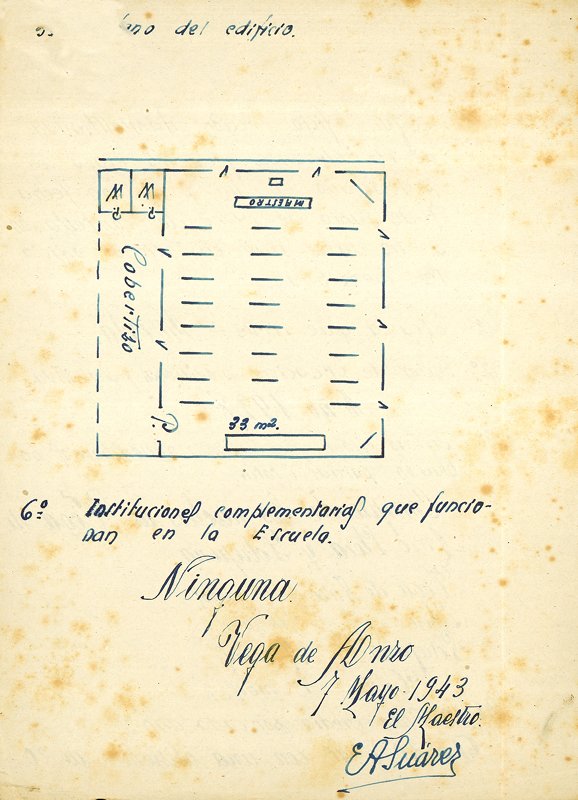 del edificio.
W. W.
P. P.
MAESTRO
V V
V
V
V
V
V
Cobertizo
P.
33 m2.
6º Instituciones complementarias que funcio-
nan en la Escuela.
Ninguna
Vega de Anzo
7 Mayo 1943
El Maestro.
EASuárez